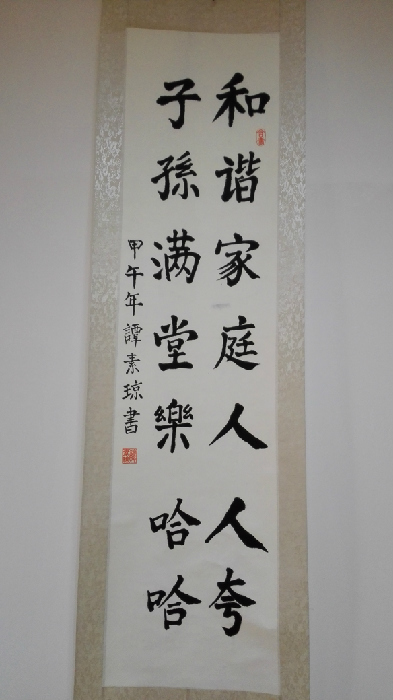 和谐家庭人人夸
子孫满堂樂哈哈
甲午年譚素琼書